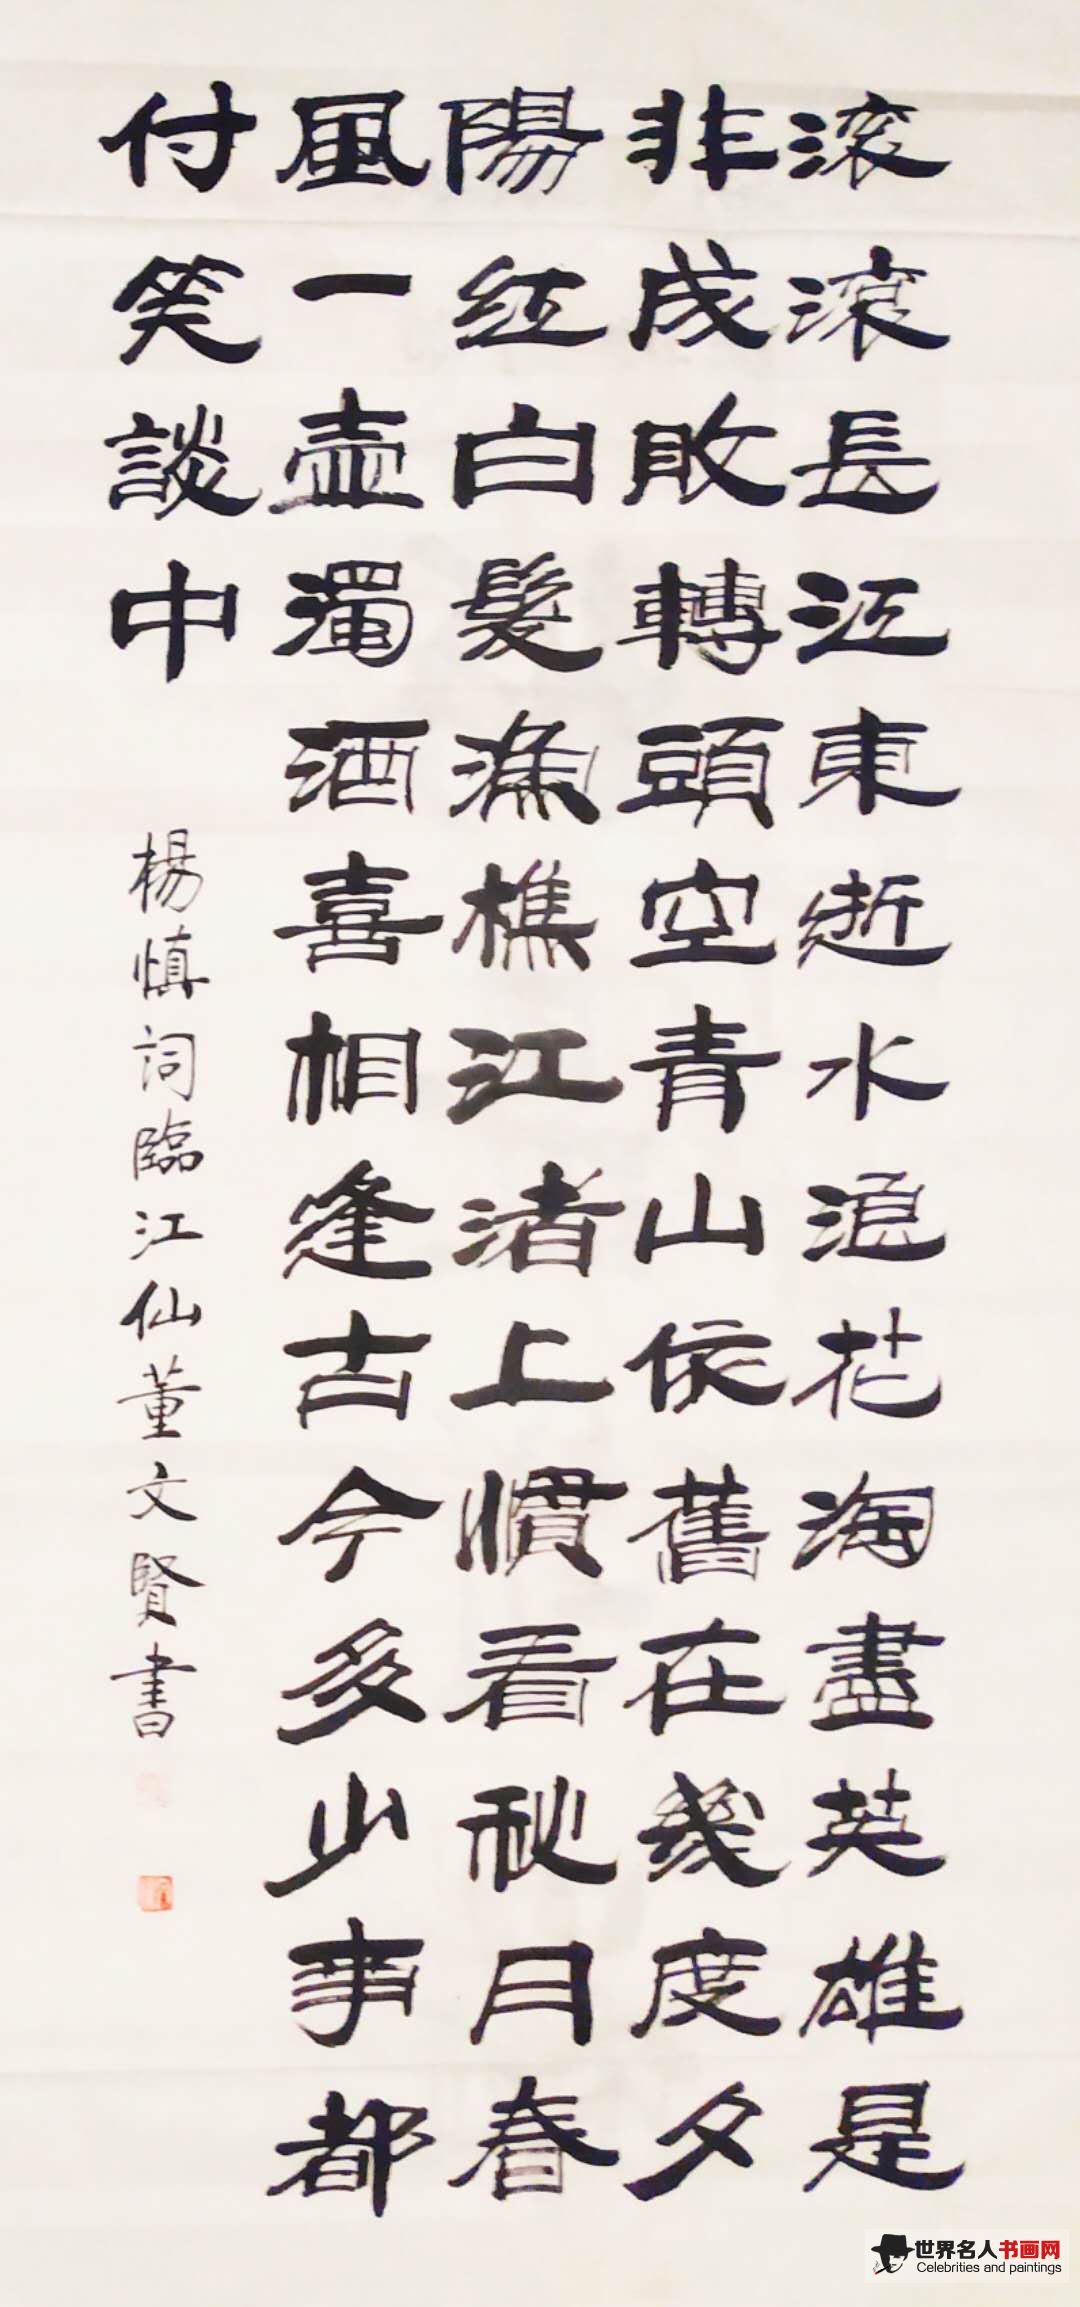 滚滚長江東逝水浪花淘盡英雄是
非成敗轉頭空青山依舊在幾度夕
陽紅白髮漁樵江渚上慣看秋月春
風一壺濁酒喜相逢古今多少事都
付笑談中
楊慎詞臨江仙董文賢書
世界名人书画网
Celebrities and paintings